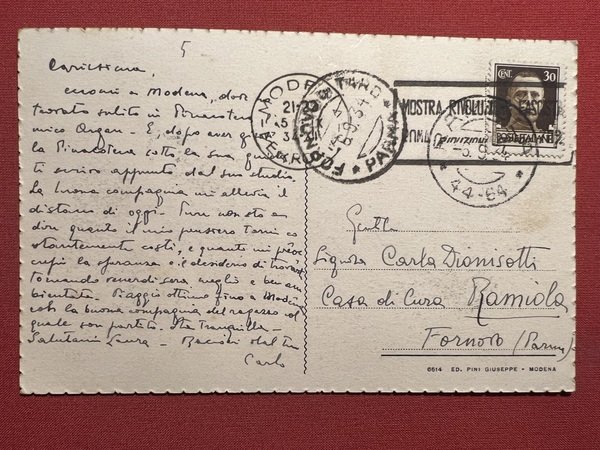 5
Carissima,
eccomi a Modena, dove
trovato subito in Pinacoteca
amico Ungar. E, dopo aver
la Pinacoteca sotto la sua
ti scrivo appunto dal suo studio.
La buona compagnia mi allevia il
distacco di oggi. Pure non sto a
dire quanto il mio pensiero torni
costantemente costì, e quanto mi
la speranza e il desiderio di
tornando venerdì sera meglio e ben am
bientata. Viaggio ottimo fino a Modena
con la buona compagnia del ragazzo col
quale son partito. Sta tranquilla.
Salutami Laura - Bacioni dal tuo
Carlo
MODENA
FERROVIA
FORNOVO TARO
* PARMA *
6.9.34
MOSTRA RIVOLUZIONE FASCISTA
CENT. 30
POSTE ITALIANE
44-64
Gentle
Signora Carla Dionisotti
Casa di Cura Ramiola
Fornovo (Parma)
6614 ED. PINI GIUSEPPE - MODENA